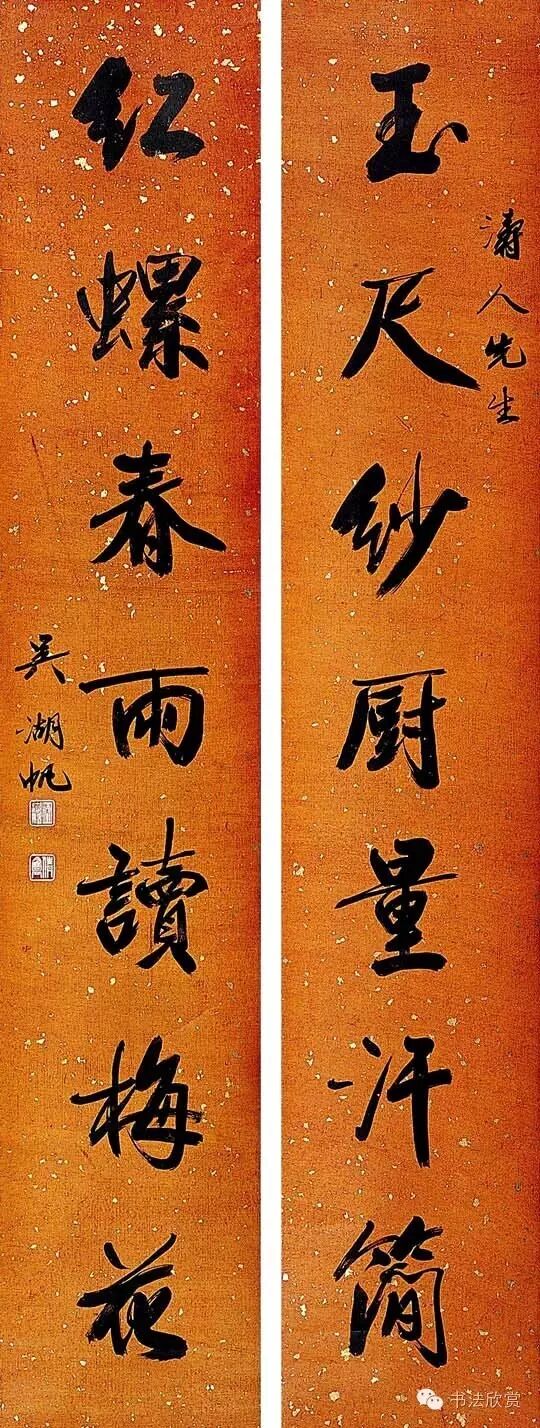 玉尺紗厨量汗簡
濤人先生
紅螺春雨讀梅花
吴湖帆
书法欣赏